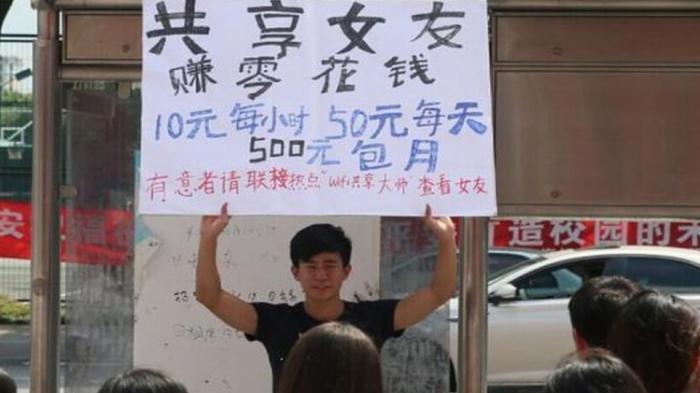 共享女友
赚零花钱
10元每小时 50元每天
500元包月
有意者请联接热点"wifi共享大师"查看女友
造校园的